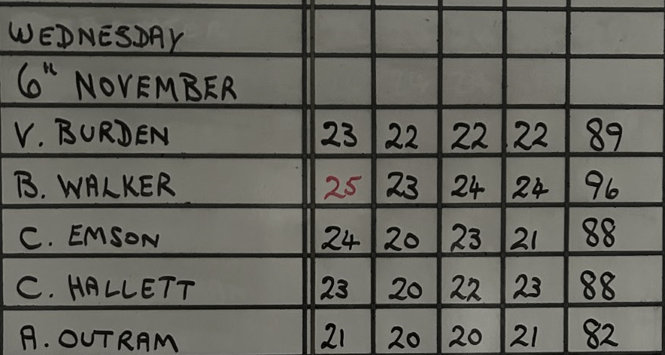 WEDNESDAY
6TH NOVEMBER
V. BURDEN 23 22 22 22 89
B. WALKER 25 23 24 24 96
C. EMSON 24 20 23 21 88
C. HALLETT 23 20 22 23 88
A. OUTRAM 21 20 20 21 82